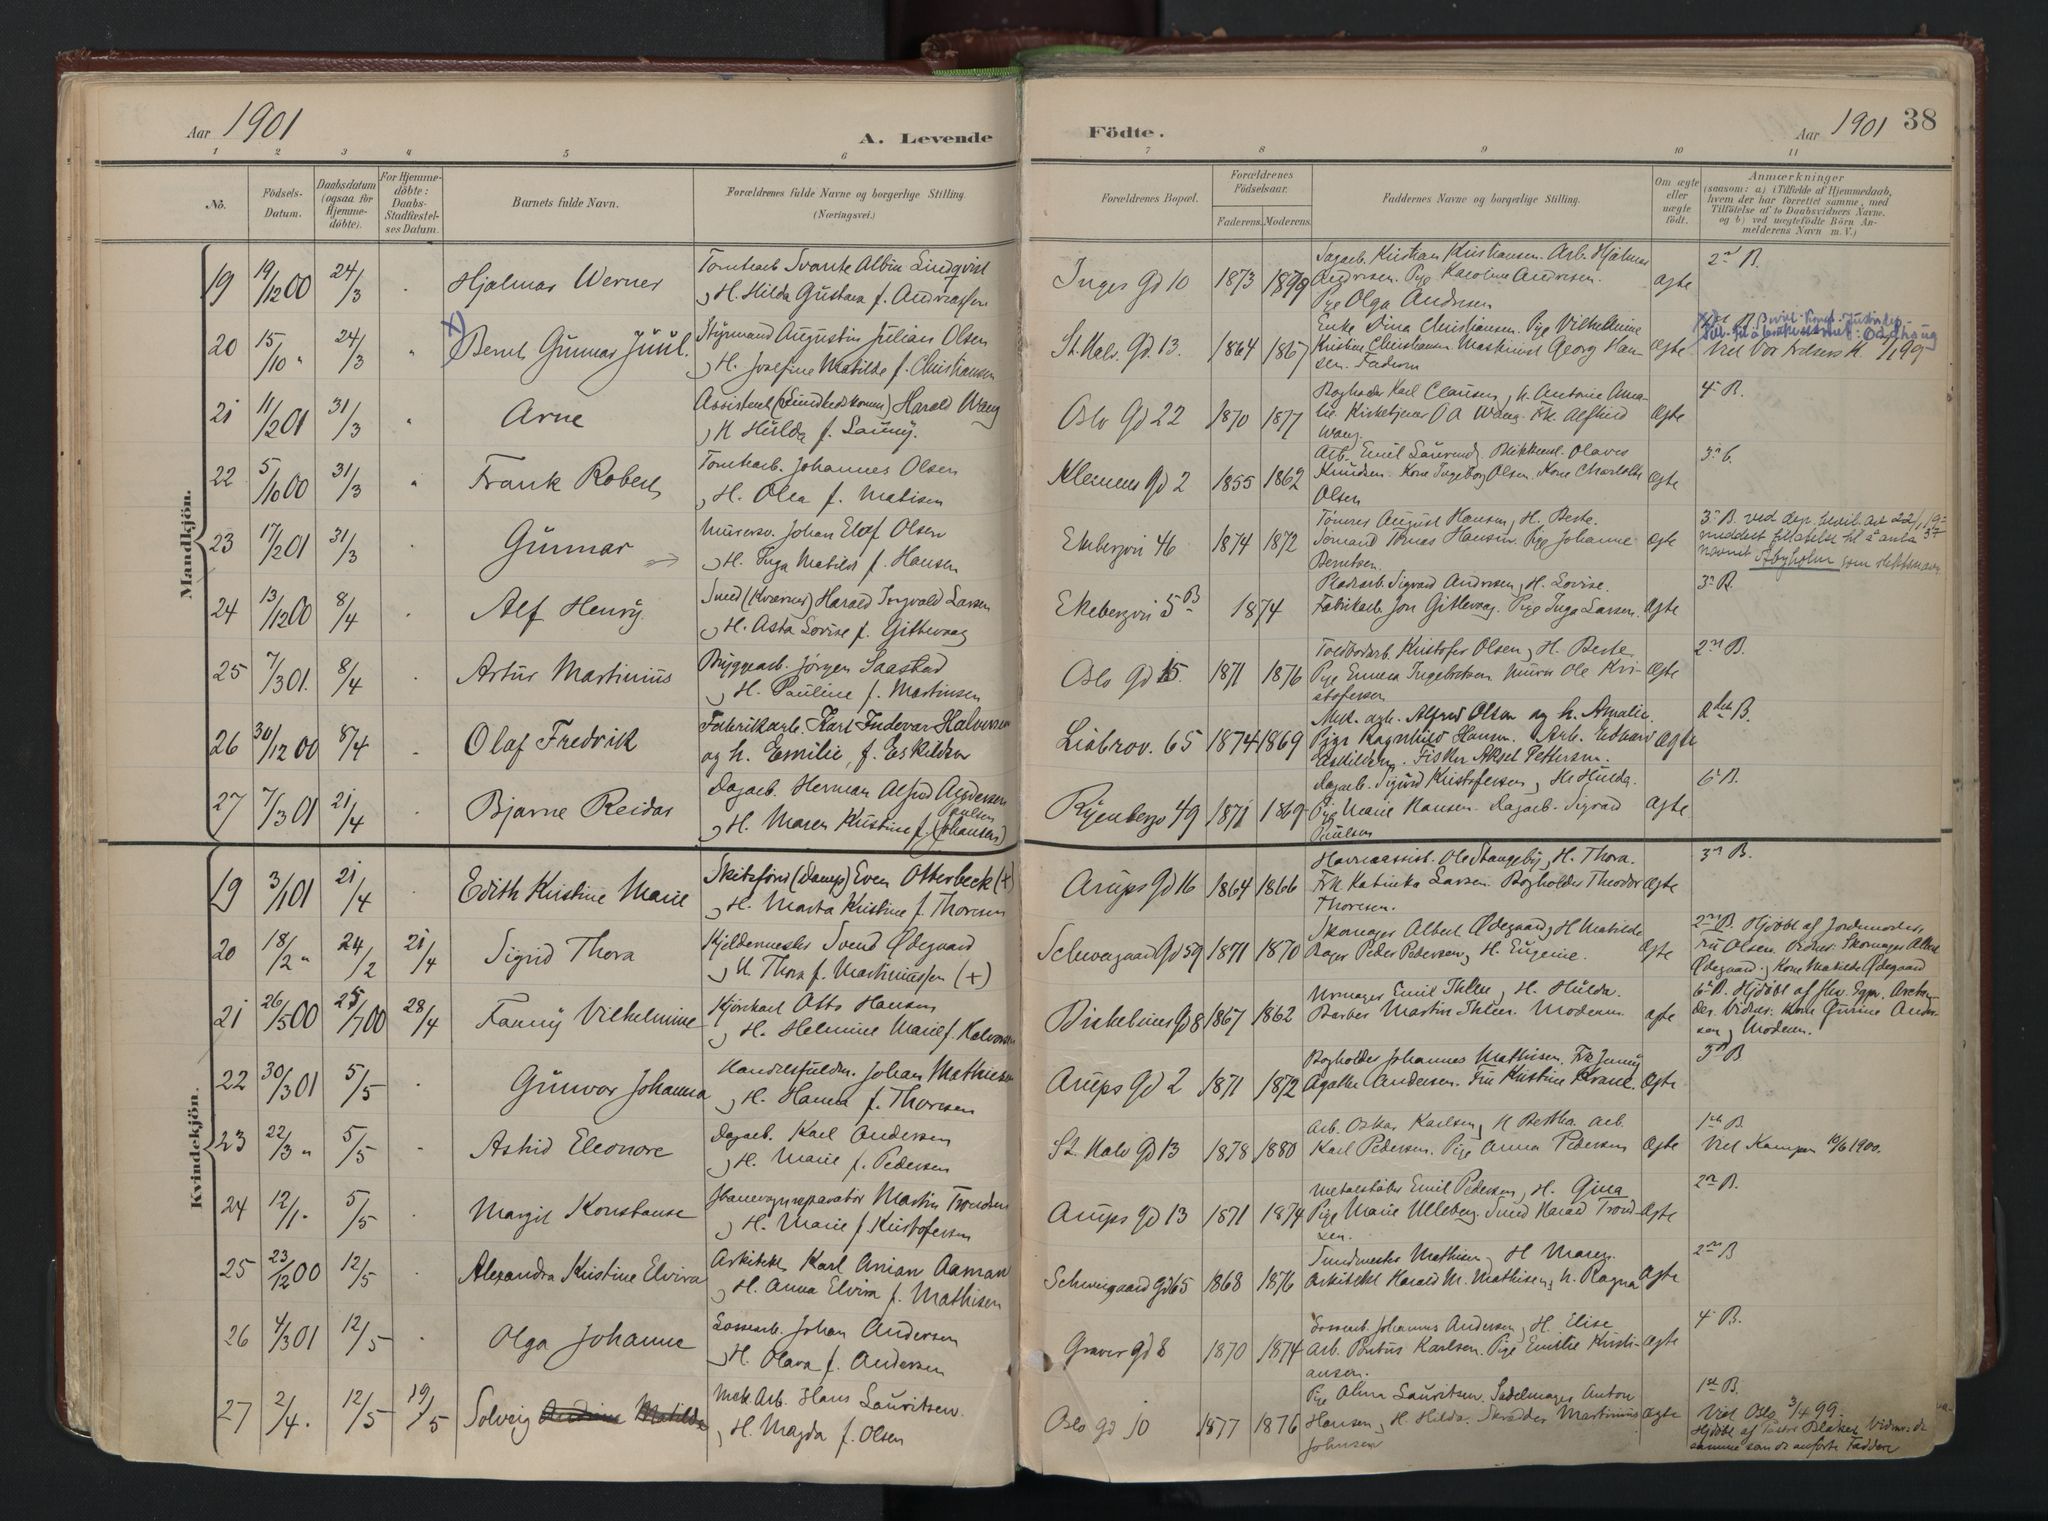 Aar 1901
A. Levende
Födte.
Aar 1901
38
1 2 3 4 5 6 7 8 9 10 11
No.
Födsels-Datum.
Daabsdatum (ogsaa for Hjemme-döbte).
For Hjemme-döbte: Daabs-Stadfæstel-ses Datum.
Barnets fulde Navn.
Forældrenes fulde Navne og borgerlige Stilling.
(Næringsvei.)
Forældrenes Bopæl.
Forældrenes Födselsaar.
Faderens. Moderens.
Faddernes Navne og borgerlige Stilling.
Om ægte eller uægte födt.
Anmærkninger
(saasom: a) i Tilfælde af Hjemmedaab, hvem der har forrettet samme, med Tilföielse af to Daabsvidners Navne, og b) ved uægtefödte Börn An-melderens Navn m. V.)
Mandkjön.
19 19/12 00 24/3 Hjalmar Werner Tomtearb Svante Albin Lindqvist
H. Hilda Gustava f. Andreassen
Inges Gd 10 1873
Sagarb. Kristian Kristiansen. Arb. Hjalmar
Andresen. Pige Karoline Andresen.
Pige Olga Andresen
ægte 2n B.
20 15/10 " 24/3 " x) Bernt Gunnar Juul. Styrmand Augustin Julian Olsen
H. Josefine Matilde f. Christiansen
St. Halv. Gd. 13. 1864 1867
Enke Dina Christiansen. Pige Vilhelmine
Kristine Christiansen. Maskinist Georg Han-
sen. Faderen
ægte
Viet Vor Frelsers K. 1/1 99
21 11/2 01 31/3 " Arne Assistent (Sundhedskomm) Harald Wang
H Hulda f. Launy.
Oslo Gd 22 1870 1877
Bogholder Karl Clausen, H. Antonie Ama-
lie. Kirketjener O A Wang. Frk Alfhild
Wang.
Ægte 4 B.
22 5/10 00 31/3 " Frank Robert Tomtearb. Johannes Olsen
H. Olea f. Matisen
Klemens Gd 2 1855 1862
Arb. Emil Laurend. Blikkensl. Olaves
Knudsen. Kone Ingeborg Olsen. Kone Charlotte
Olsen
ægte
23 17/2 01 31/3 Gunnar Murersv. Johan Elof Olsen
H. Inga Matilde f. Hansen
Ekebergvn 46 1874 1872
Tömres August Hansen, H. Berte.
Sömand Tomas Hansen. Pige Johanne
Berntsen.
Ægte
3 B. ved dep. bevil. av 22/1 19
meddelt tillatelse til å anta
navnet Åbyholm som slektsnavn
24 13/12 00 8/4 Alf Henry. Smed (Kværner) Harald Ingvald Larsen
H. Asta Lovise f. Gittevaag
Ekebergvn 5 B 1874
Pladsarb. Sigvard Andresen, H. Lovise.
Fabrikarb. Jon Gittevaag. Pige Inga Larsen.
Ægte 3 B.
25 7/3 01. 8/4 Artur Martinius Bryggearb. Jörgen Saastad
H. Pauline f. Martinsen
Oslo Gd 15. 1871 1876
Toldbodarb. Kristofer Olsen, H. Berte.
Pige Emma Ingebretsen. Murer Ole Kri-
stofersen
Ægte 2n B.
26 30/12 00 8/4 Olaf Fredrik Fabrikarb. Karl Indevar Halvorsen
og h. Emilie, f. Eskildsen
Liabrov. 65 1874 1869
Mek. arb. Alfred Olsen og h. Amalie.
Pige Ragnhild Hansen. Arb. Edvard
Eskildsen. Fisker Aksel Pettersen.
Ægte 2den B.
27 7/3 01 21/4 Bjarne Reidar Dagarb. Herman Alfred Andersen
H. Maren Kristine f. (Johansen) Poulsen
Ryenbergv 49 1871 1869
Dagarb. Sigurd Kristofersen, H. Hulda.
Pige Marie Hansen. Dagarb. Sigvard
Paulsen
Ægte 6 B.
Kvindekjön.
19 3/1 01 21/4 Edith Kristine Marie Skibsförer (Damp) Even Otterbeck (+)
H. Marta Kristine f. Thoresen
Arups Gd 16 1864 1866
Havneassist. Ole Stangeby, H. Thora.
Frk Katinka Larsen. Bogholder Theodor
Thoresen.
Ægte 3n B.
20 18/2 " 24/2 21/4 Sigrid Thora Kjeldermester Svend Ødegaard
H. Thora f. Martinussen (+)
Schweigaard Gd 59 1871 1870
Skomager Albert Ødegaard, H Matilde
Bager Peder Pedersen, H. Eugenie.
Ægte
2n B. Hjdöbt af Jordemoder,
Fru Olsen. Vidner: Skomager Albert
Ødegaard, Kone Matilde Ødegaard
21 26/5 00 25/7 00 28/4 Fanny Vilhelmine Kjörekarl Otto Hansen
H. Helmine Marie f. Halvorsen
Birkebeiner Gd 8 1867 1862
Urmager Emil Thlee, H. Hulda.
Barber Martin Thlen. Moderen.
Ægte
Vidner: Kone Gurine Ander-
sen, Moderen.
22 30/3 01 5/5 Gunvor Johanna Handelsfuldm. Johan Mathiesen
H. Hanna f. Thoresen
Arups Gd 2 1871 1872
Bogholder Johannes Mathisen. Frk Jenny
Agathe Andersen. Fru Kristine Krane.
Ægte 3n B
23 22/3 " 5/5 Astrid Eleonore Dagarb. Karl Andersen
H. Marie f. Pedersen
St. Halv Gd 13 1878 1880
Arb. Oskar Karlsen, H Bertha. Arb.
Karl Pedersen. Pige Anna Pedersen
Ægte 1ste B.
Viet Kampen 10/6 1900.
24 12/1. 5/5 Margit Konstanse Jbanevognreparatör Martin Trondsen
H. Marie f. Kristofersen
Arups Gd 13 1871 1874
Metalstöber Emil Pedersen, H. Gina
Pige Marie Ulleberg. Smed Harald Trond
sen.
Ægte 2n B.
25 23/12 00 12/5 Alexandra Kristine Elvira Arkitekt Karl Anian Aaman
H. Anna Elvira f. Mathisen
Schweigaard Gd 65 1868 1876
Smedmester Mathisen, H Maren.
Arkitekt Harald M. Mathisen, H. Ragna
Ægte 2n B
26 4/3 01 12/5 Olga Johanne Lossearb. Johan Andersen
H. Olava f. Andersen
Graver Gd 8 1870 1874
Lossearb. Johannes Andersen, H. Elise
Arb. Karlsen. Pige Emilie Kristi-
ansen.
Ægte 4 B.
27 2/4. 12/5 19/5 Solveig Matilde Mek. Arb. Hans Lauritsen.
H. Magda f. Olsen
Oslo Gd 10 1877 1876
Pige Alma Lauritsen. Sadelmager Anton
Hansen, H. Hilda. Skrædder Martinius
Johnsen
Ægte 1ste B.
Viet Oslo 3/4 99.
Hjdöbt af Pastor Blaker Vidner: de
samme som de anförte Faddere